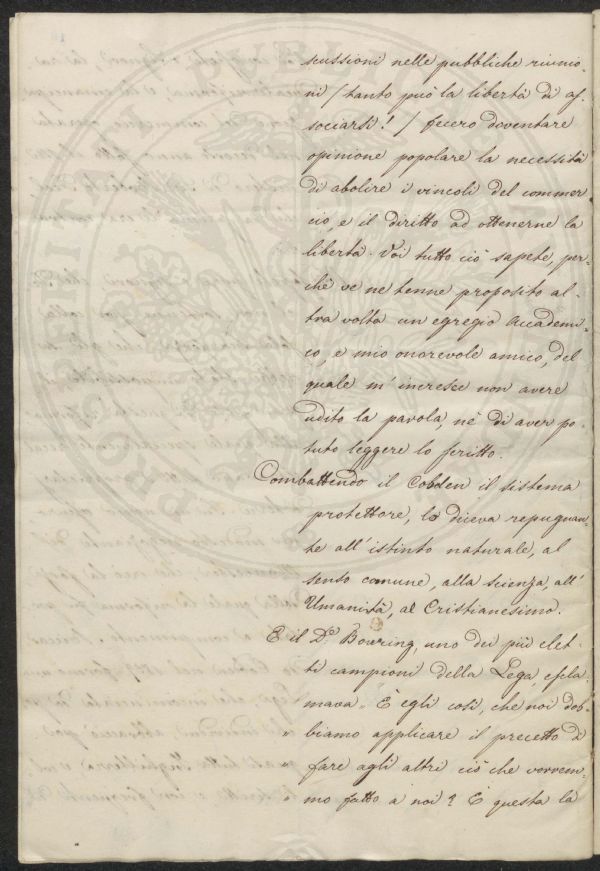 scussioni nelle pubbliche riunio-
ni / tanto può la libertà di as-
sociarsi! / fecero doventare
opinione popolare la necessità
di abolire i vincoli del commer
cio, e il diritto ad ottenerne la
libertà. Voi tutto ciò sapete, per-
chè ve ne tenne proposito al-
tra volta un egregio Accademi-
co, e mio onorevole amico, del
quale m'incresce non avere
udito la parola, nè di aver po-
tuto leggere lo scritto.
Combattendo il Cobden il sistema
protettore, lo diceva repugnan-
te all'istinto naturale, al
senso comune, alla scienza, all'
Umanità, al Cristianesimo.
E il Dr. Bowring, uno dei più elet-
ti campioni della Lega, escla
mava „ È egli così, che noi dob-
„ biamo applicare il precetto di
„ fare agli altri ciò che vorrem-
„ mo fatto a noi? È questa la